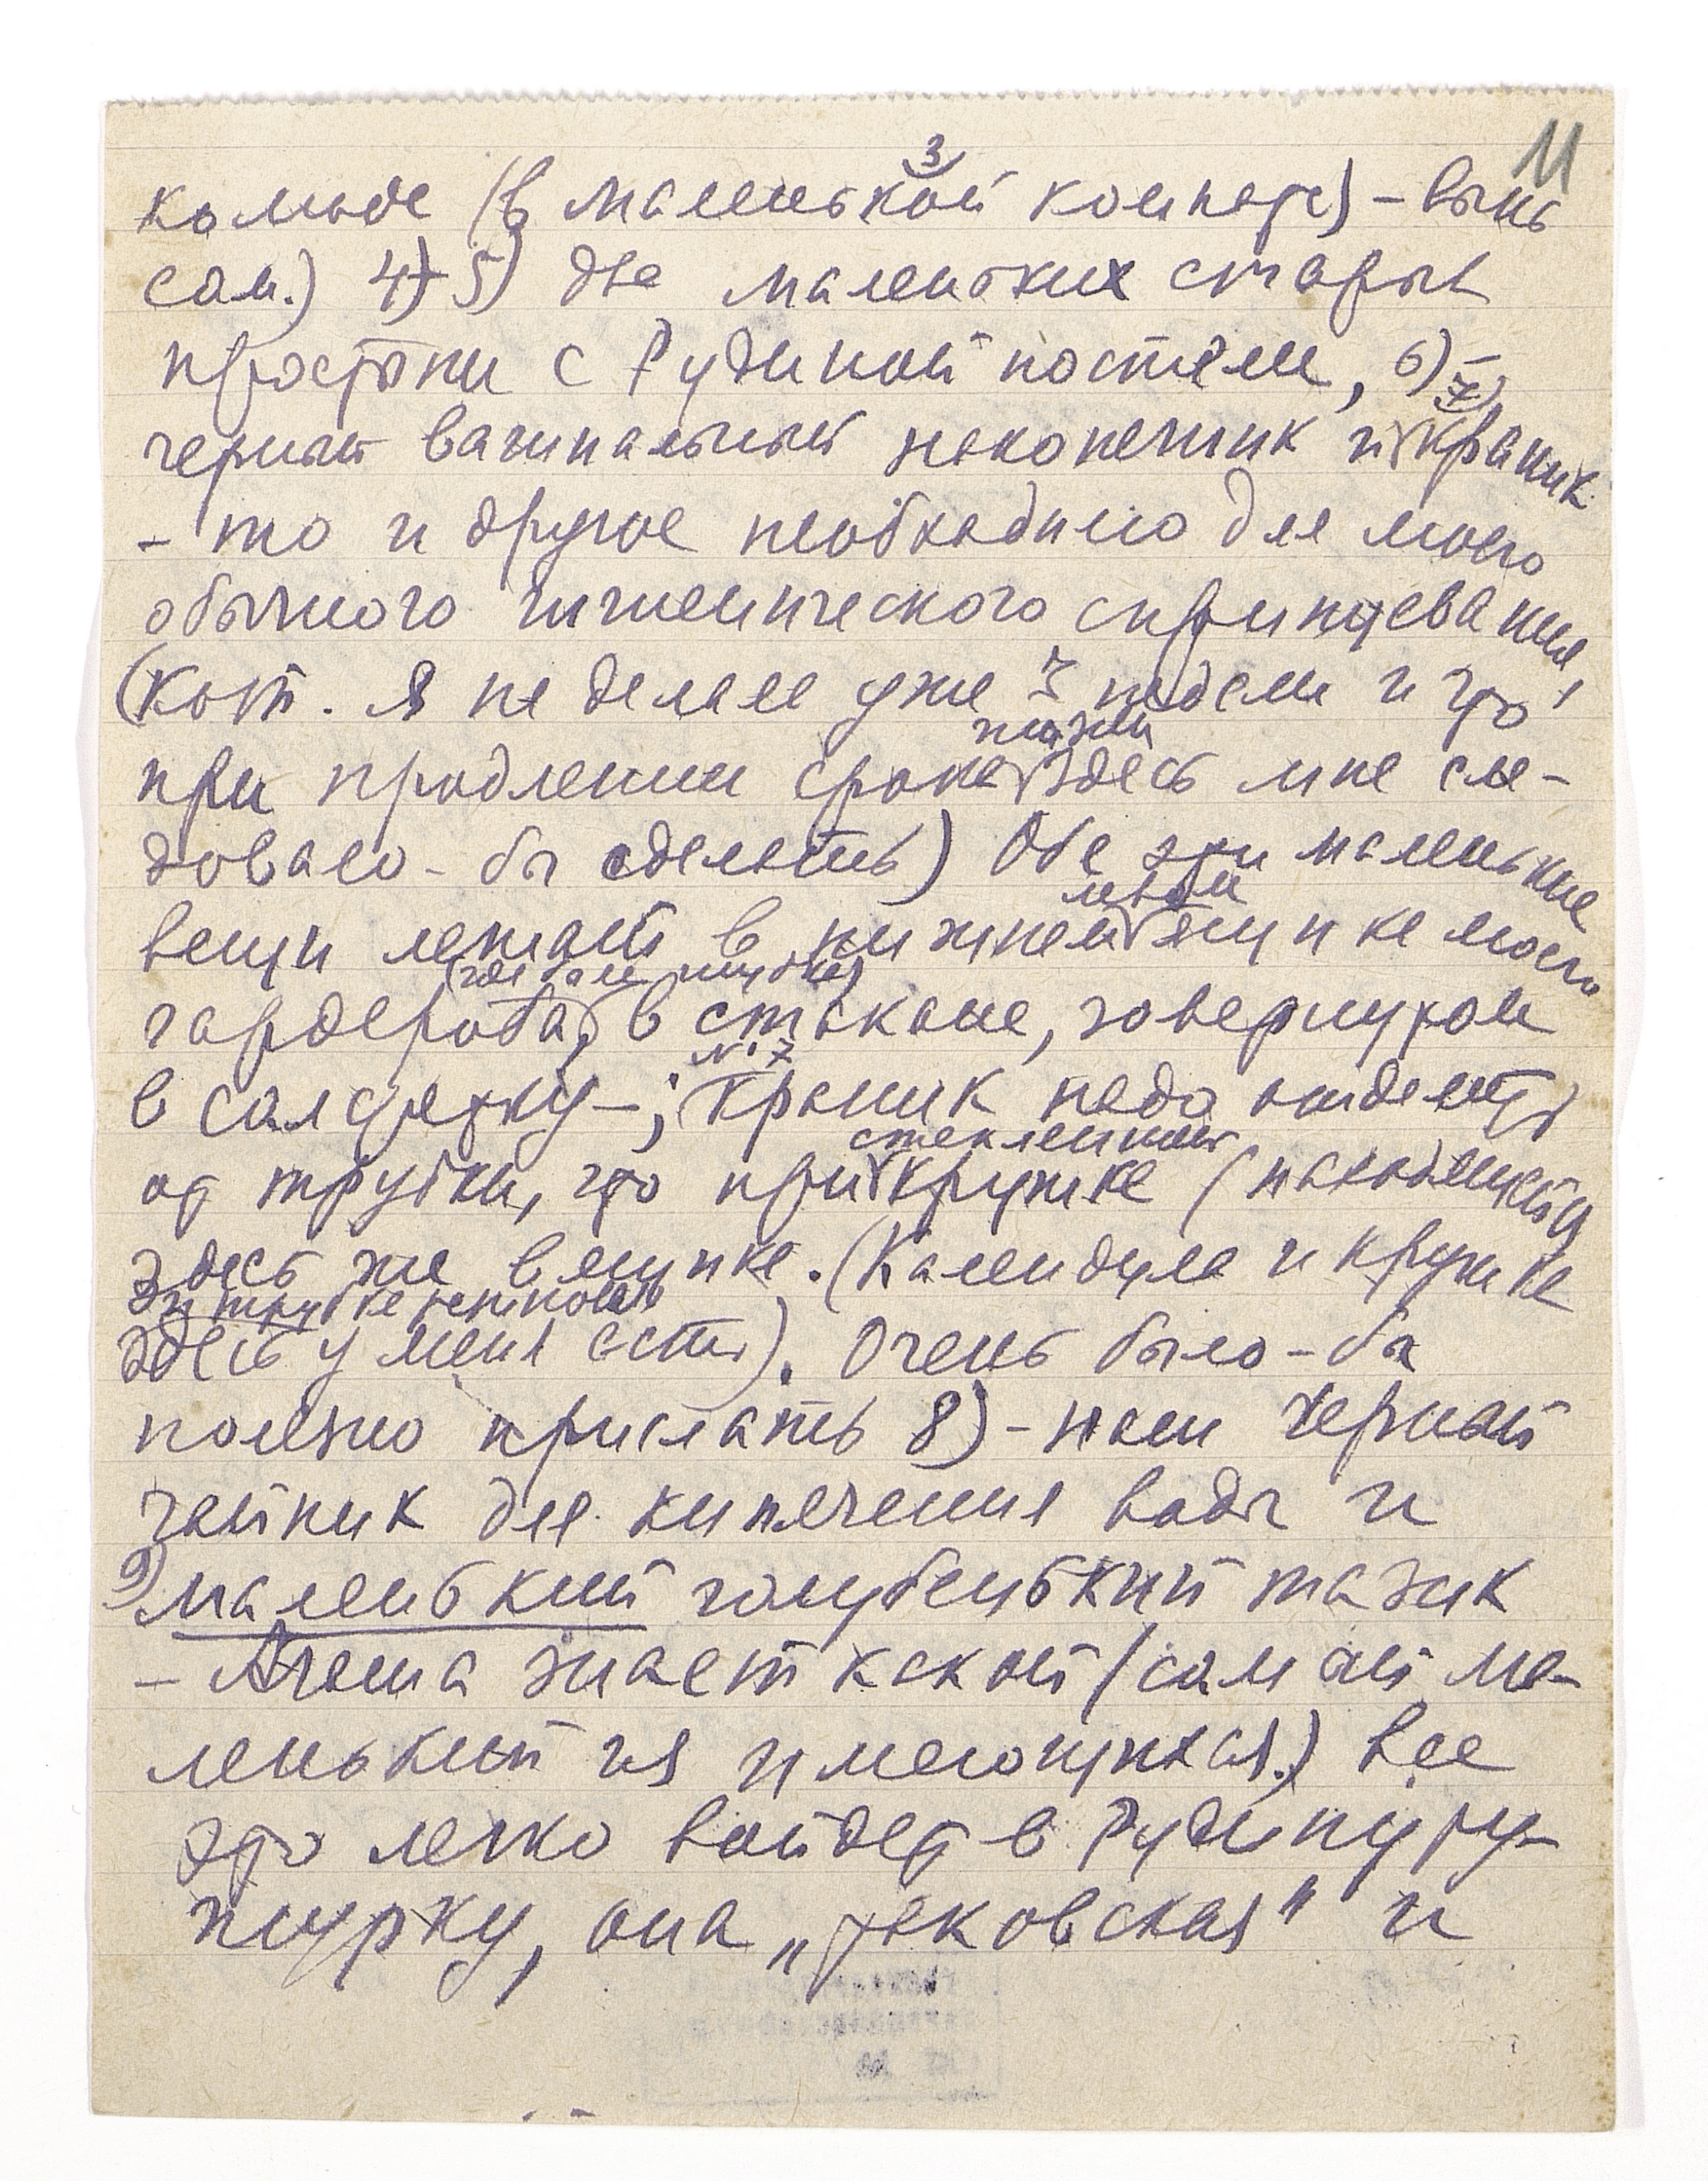 3
11
комоде (в маленькой комнате) – вынь
сам.) 4)+5) две маленьких старых
простыни с Рудиной постели, 6)–
7)
черный вагинальный наконечник и краник
– то и другое необходимо для моего
обычного гигиенического спринцевания,
(кот. я не делаю уже 3 недели и что
при продлении срока жизни здесь мне сле-
довало-бы сделать) Обе эти маленькие
вещи лежат в нижнем левом ящике моего
гардероба, (где были) в стакане, завернутом
в салфетку –; краник №7 надо отделить
от трубки, что при стеклянной кружке (находящейся
здесь же в ящике. (Календула и кружка
здесь у меня есть). Очень было-бы
полезно прислать 8) – наш черный
чайник для кипячения воды и
9) маленький голубенький тазик
– Агаша знает какой (самый ма-
ленький из имеющихся.) все
это легко войдет в Рудину
она „ и